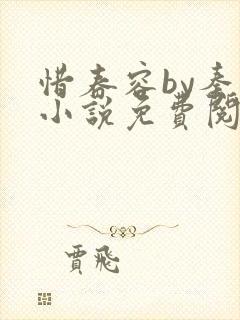 惜春容by秦
小說免費閱
賈飛